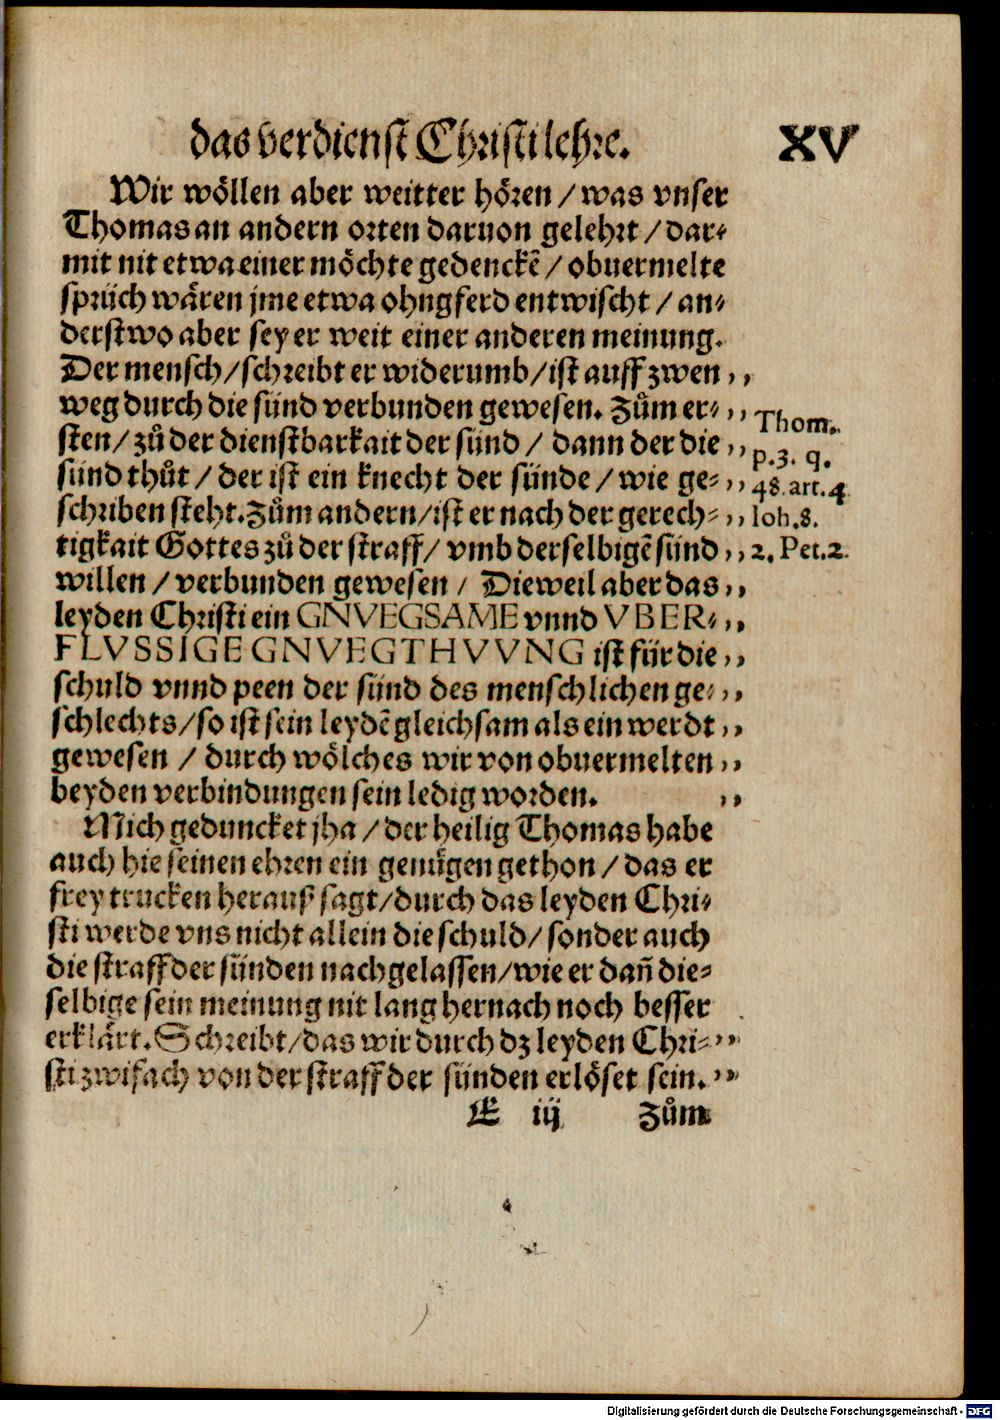 das verdienst Christi lehre. XV
Wir wöllen aber weitter hören / was vnser
Thomas an andern orten daruon gelehrt / dar⸗
mit nit etwa einer möchte gedenckē / obuermelte
sprüch wären jme etwa ohngferd entwischt / an⸗
derstwo aber sey er weit einer anderen meinung.
Der mensch / schreibt er widerumb / ist auff zwen ,,
weg durch die sünd verbunden gewesen. Zům er⸗ ,, Thom.
sten / zů der dienstbarkait der sünd / dann der die ,, p.3. q.
sünd thůt / der ist ein knecht der sünde / wie ge⸗ ,, 48. art.4
schriben steht. Zům andern / ist er nach der gerech⸗ ,, Ioh.8.
tigkait Gottes zů der straff / vmb derselbigē sünd ,, 2. Pet.2.
willen / verbunden gewesen / Dieweil aber das ,,
leyden Christi ein GNVEGSAME vnnd VBER⸗ ,,
FLVSSIGE GNVEGTHVVNG ist für die ,,
schuld vnnd peen der sünd des menschlichen ge⸗ ,,
schlechts / so ist sein leydē gleichsam als ein werdt ,,
gewesen / durch wölches wir von obuermelten ,,
beyden verbindungen sein ledig worden. ,,
Mich geduncket jha / der heilig Thomas habe
auch hie seinen ehren ein genůgen gethon / das er
frey trucken herauß sagt / durch das leyden Chri⸗
sti werde vns nicht allein die schuld / sonder auch
die straff der sünden nachgelassen / wie er dañ die⸗
selbige sein meinung nit lang hernach noch besser
erklärt. Schreibt / das wir durch dz leyden Chri⸗ ,,
sti zwifach von der straff der sünden erlöset sein. ,,
E iij Zům
Digitalisierung gefördert durch die Deutsche Forschungsgemeinschaft - DFG